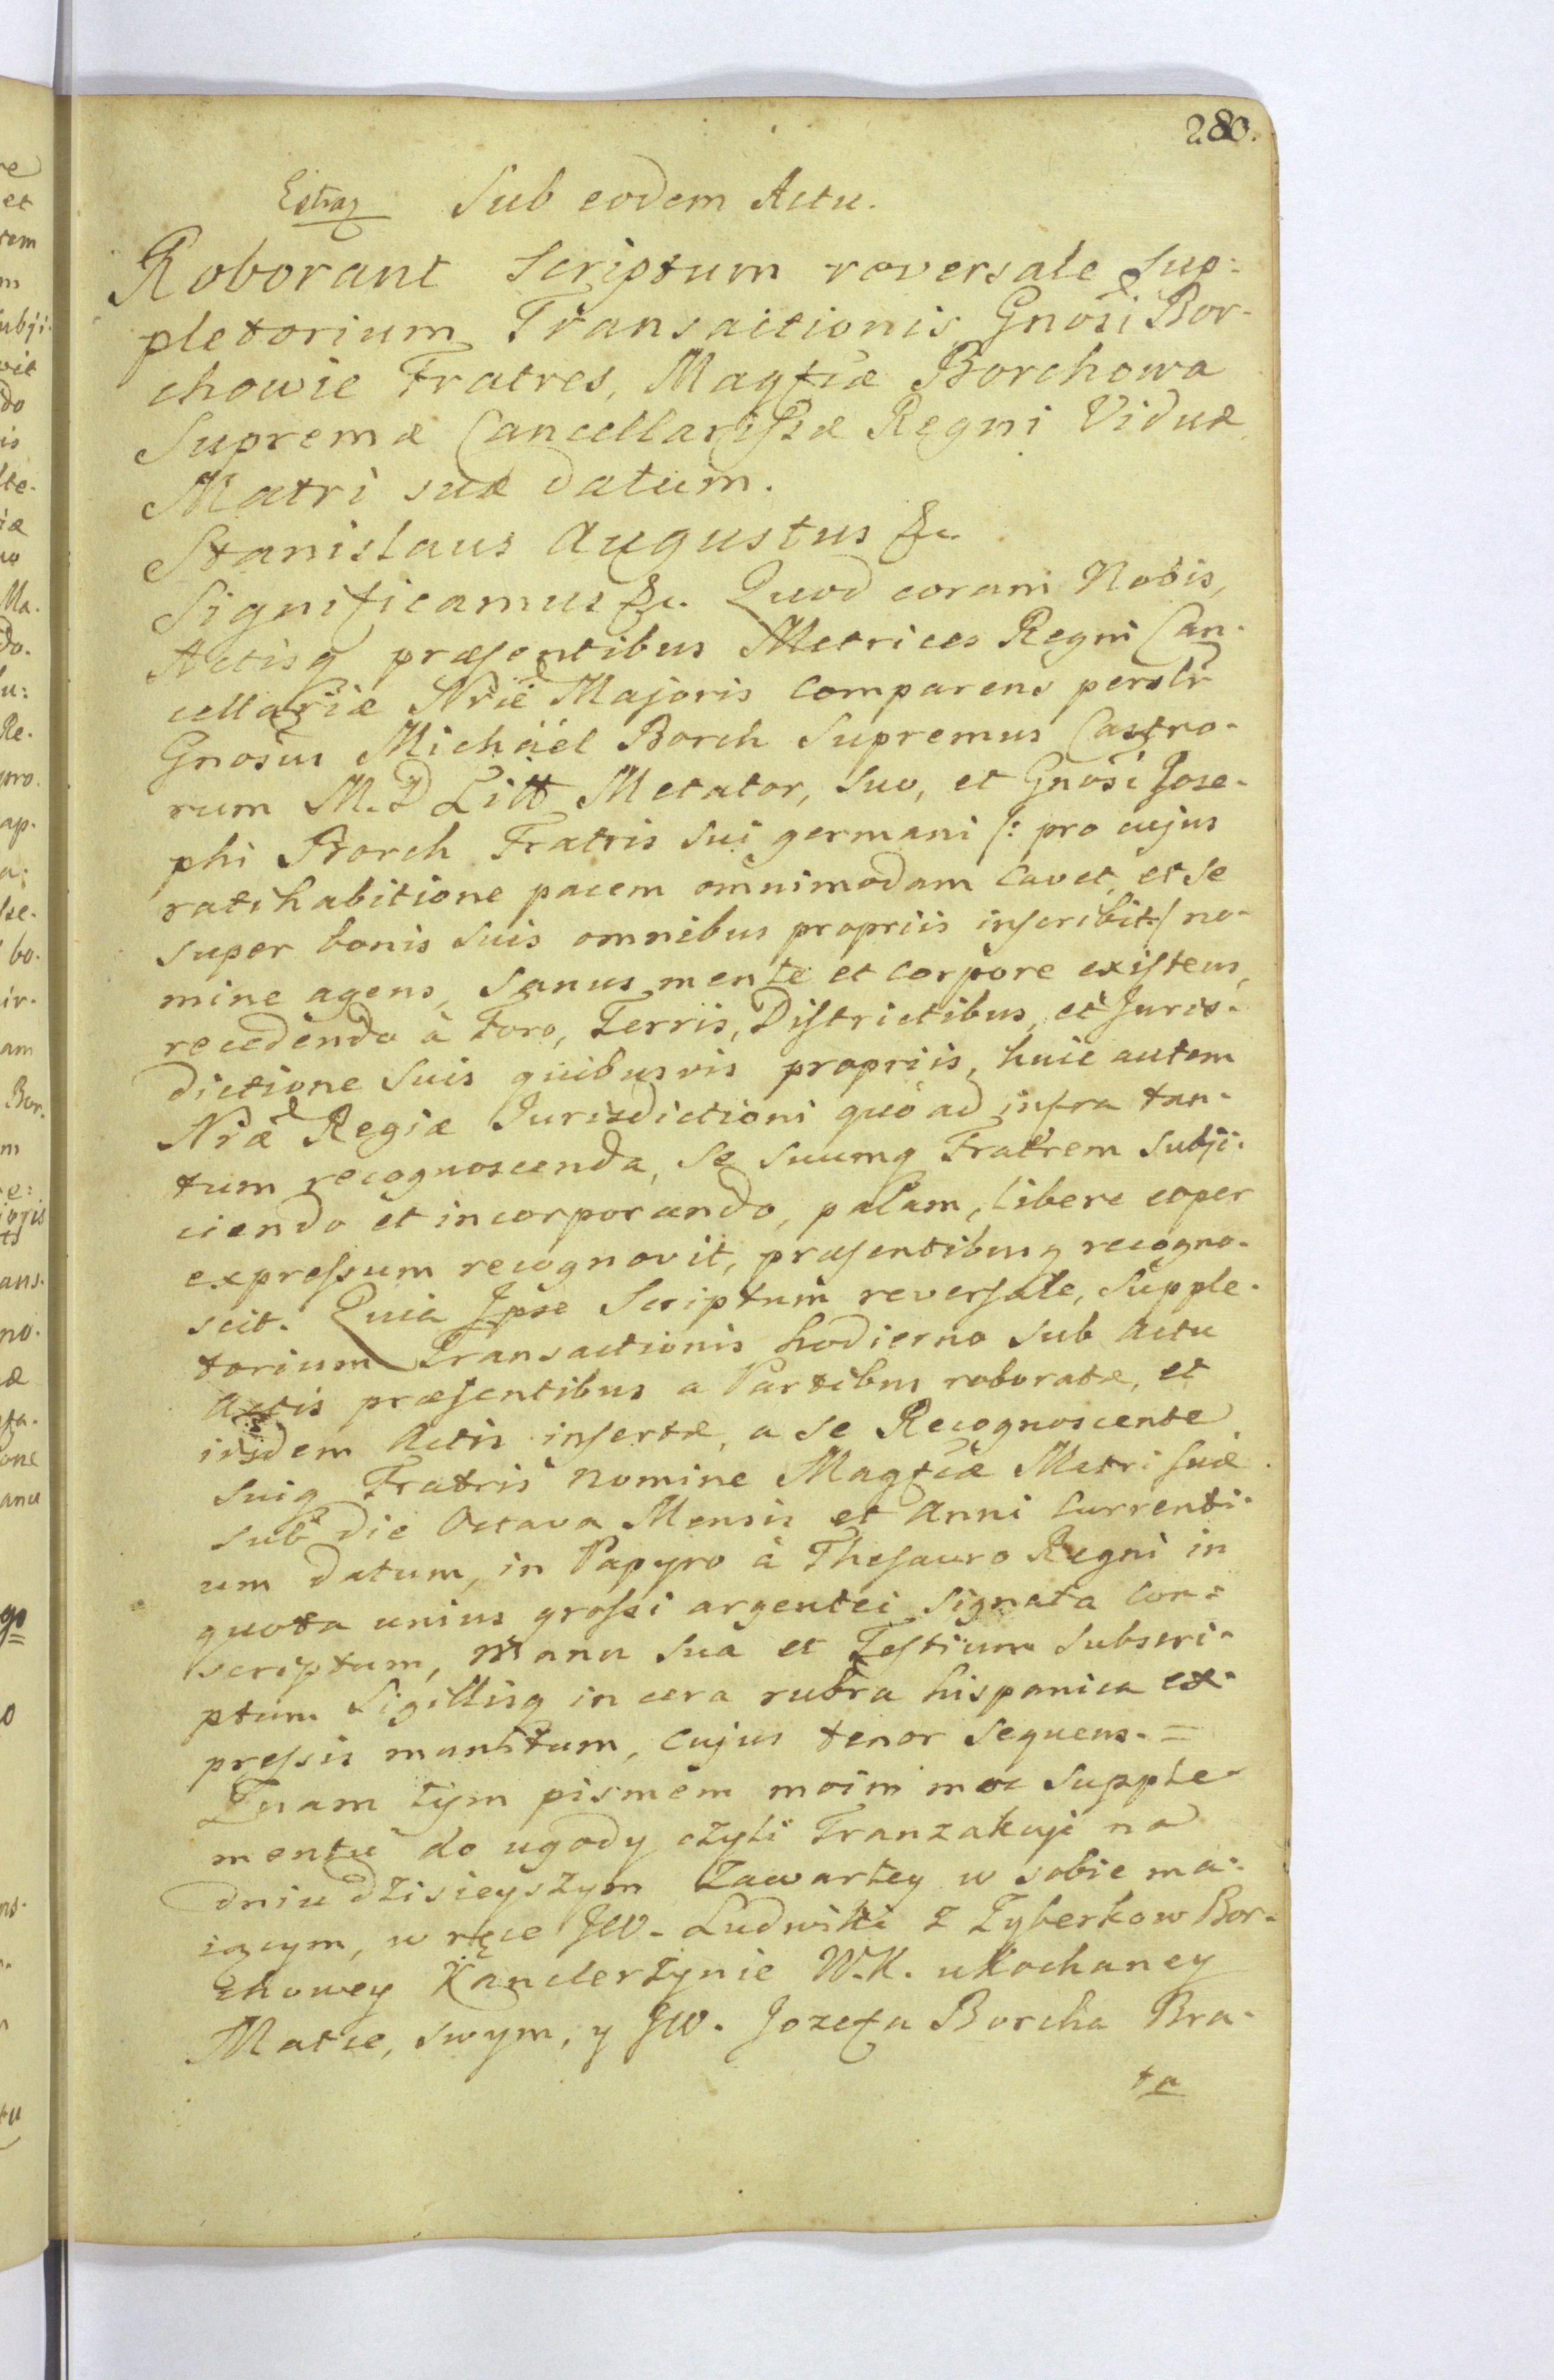 280.
Extrad Sub eodem Actu.
Roborant Scriptum reversale Sup-
pletorium Transactionis Gnosi Bor-
chowie Fratres, Magficæ Borchowa
Supremæ Cancellarissæ Regni Viduæ
Matri suæ datum.
Stanislaus Augustus &c.
Significamus &c. Quod coram Nobis,
Actisq præsentibus Metrices Regni Can-
cellariæ Nræ Majoris Comparens persolr
Gnosus Michäel Borch Supremus Castro-
rum M. D Litt Metator, suo, et Gnosi Jose-
phi Borch Fratris sui germani /: pro cujus
ratihabitione pacem omnimodam cavet, et se
super bonis suis omnibus propriis inscribit :/ no-
mine agens, sanus mente et corpore existens,
recedendo à Foro, Terris, Districtibus, et Juris-
dictione Suis quibusvis propriis, huic autem
Nræ Regiæ Jurisdictioni quo ad infra tan-
tum recognoscenda, se suumq Fratrem subji-
ciendo et incorporando, palam, libere et per
expressum recognovit, præsentibusq recogno-
scit. Quia Ipse Scriptum reversale, Supple-
torium Transactionis hodierno sub Actu
Actis præsentibus a Partibus roboratæ, et
iisdem Actis insertæ, a se Recognoscente
suiq Fratris nomine Magficæ Matri suæ
sub die Octava Mensis et Anni Currenti-
um datum, in Papyro à Thesauro Regni in
quota unius grossi argentei signata con-
scriptum, manu sua et Testium subscri-
ptum Sigillisq in cera rubra hispanica ex-
pressis munitum, cujus tenor sequens. =
Znam tym pismem moim moc Supple-
mentu do ugody czyli Tranzakcyi na
dniu dzisieyszym zawartey w sobie ma-
iącym, w ręce JW. Ludwiki z Zyberkow Bor-
chowey Kanclerzynie W. K. ukochaney
Matce, swym, y JW. Jozefa Borcha Bra-
ta